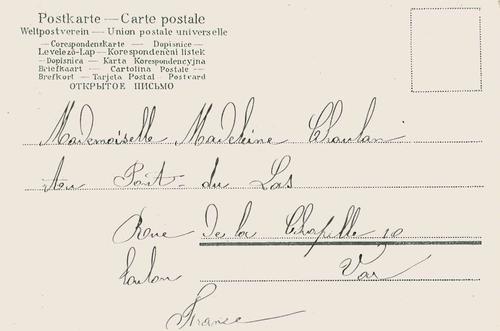 Postkarte — Carte postale
Weltpostverein — Union postale universelle
— Corespondenskarte — Dopisnice —
Levelező-Lap — Korespondencni listek
— Dopisnica — Karta Korespondencyjna
Briefkaart — Cartolina Postale —
Brefkort — Tarjeta Postal — Postcard
ОТКРЫТОЕ ПИСЬМО
Mademoiselle Madeleine
Au Pont-du Las
Rue de la Chapelle 10
Toulon Var
France